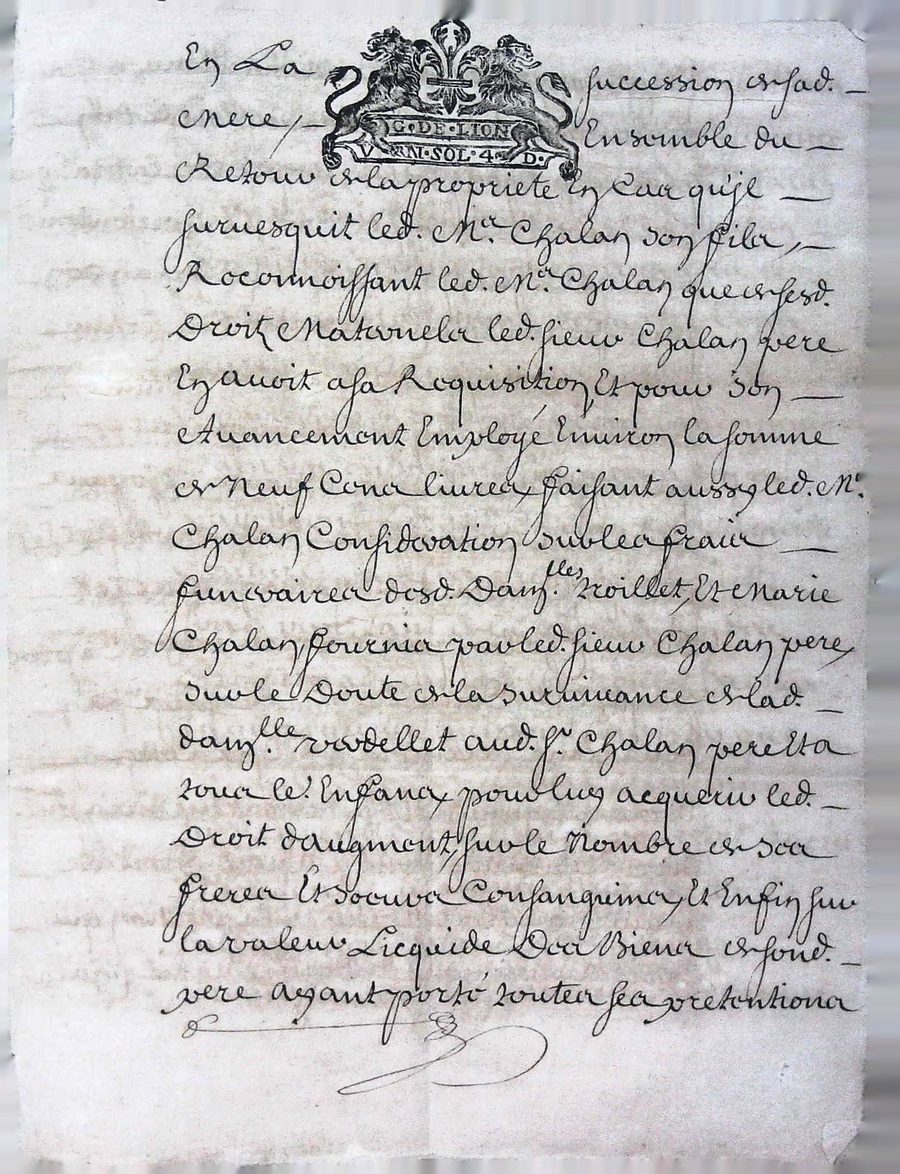 En La succession de sad.
Mere, Ensemble du
G·DE·LION
V·N·SOL·4·D·
Retour de la propriete En Cas qu'jl
survesquit led. Mr. Chalan son fils,
Reconnoissant led. Mr. Chalan que de sesd.
Droitz Maternels led. sieur Chalan pere
En avoit a sa Requisition Et pour Son
Avancement Employé Environ la somme
de Neuf Cens livres, faisant aussy led. Mr.
Chalan Consideration sur les frais
funeraires desd. Damlles. Troillet, Et Marie
Chalan, fournis par led. sieur Chalan pere,
Sur le Doute de la Survivance de lad.
damlle. verdellet aud. sr. Chalan pere Et a
tous le. Enfans, pour luy acquerir led.
Droit daugment, sur le Nombre de Ses
freres Et Soeurs Consanguins, Et Enfin sur
la valeur Licquide Des Biens de sond.
pere ayant porté toutes ses pretentions